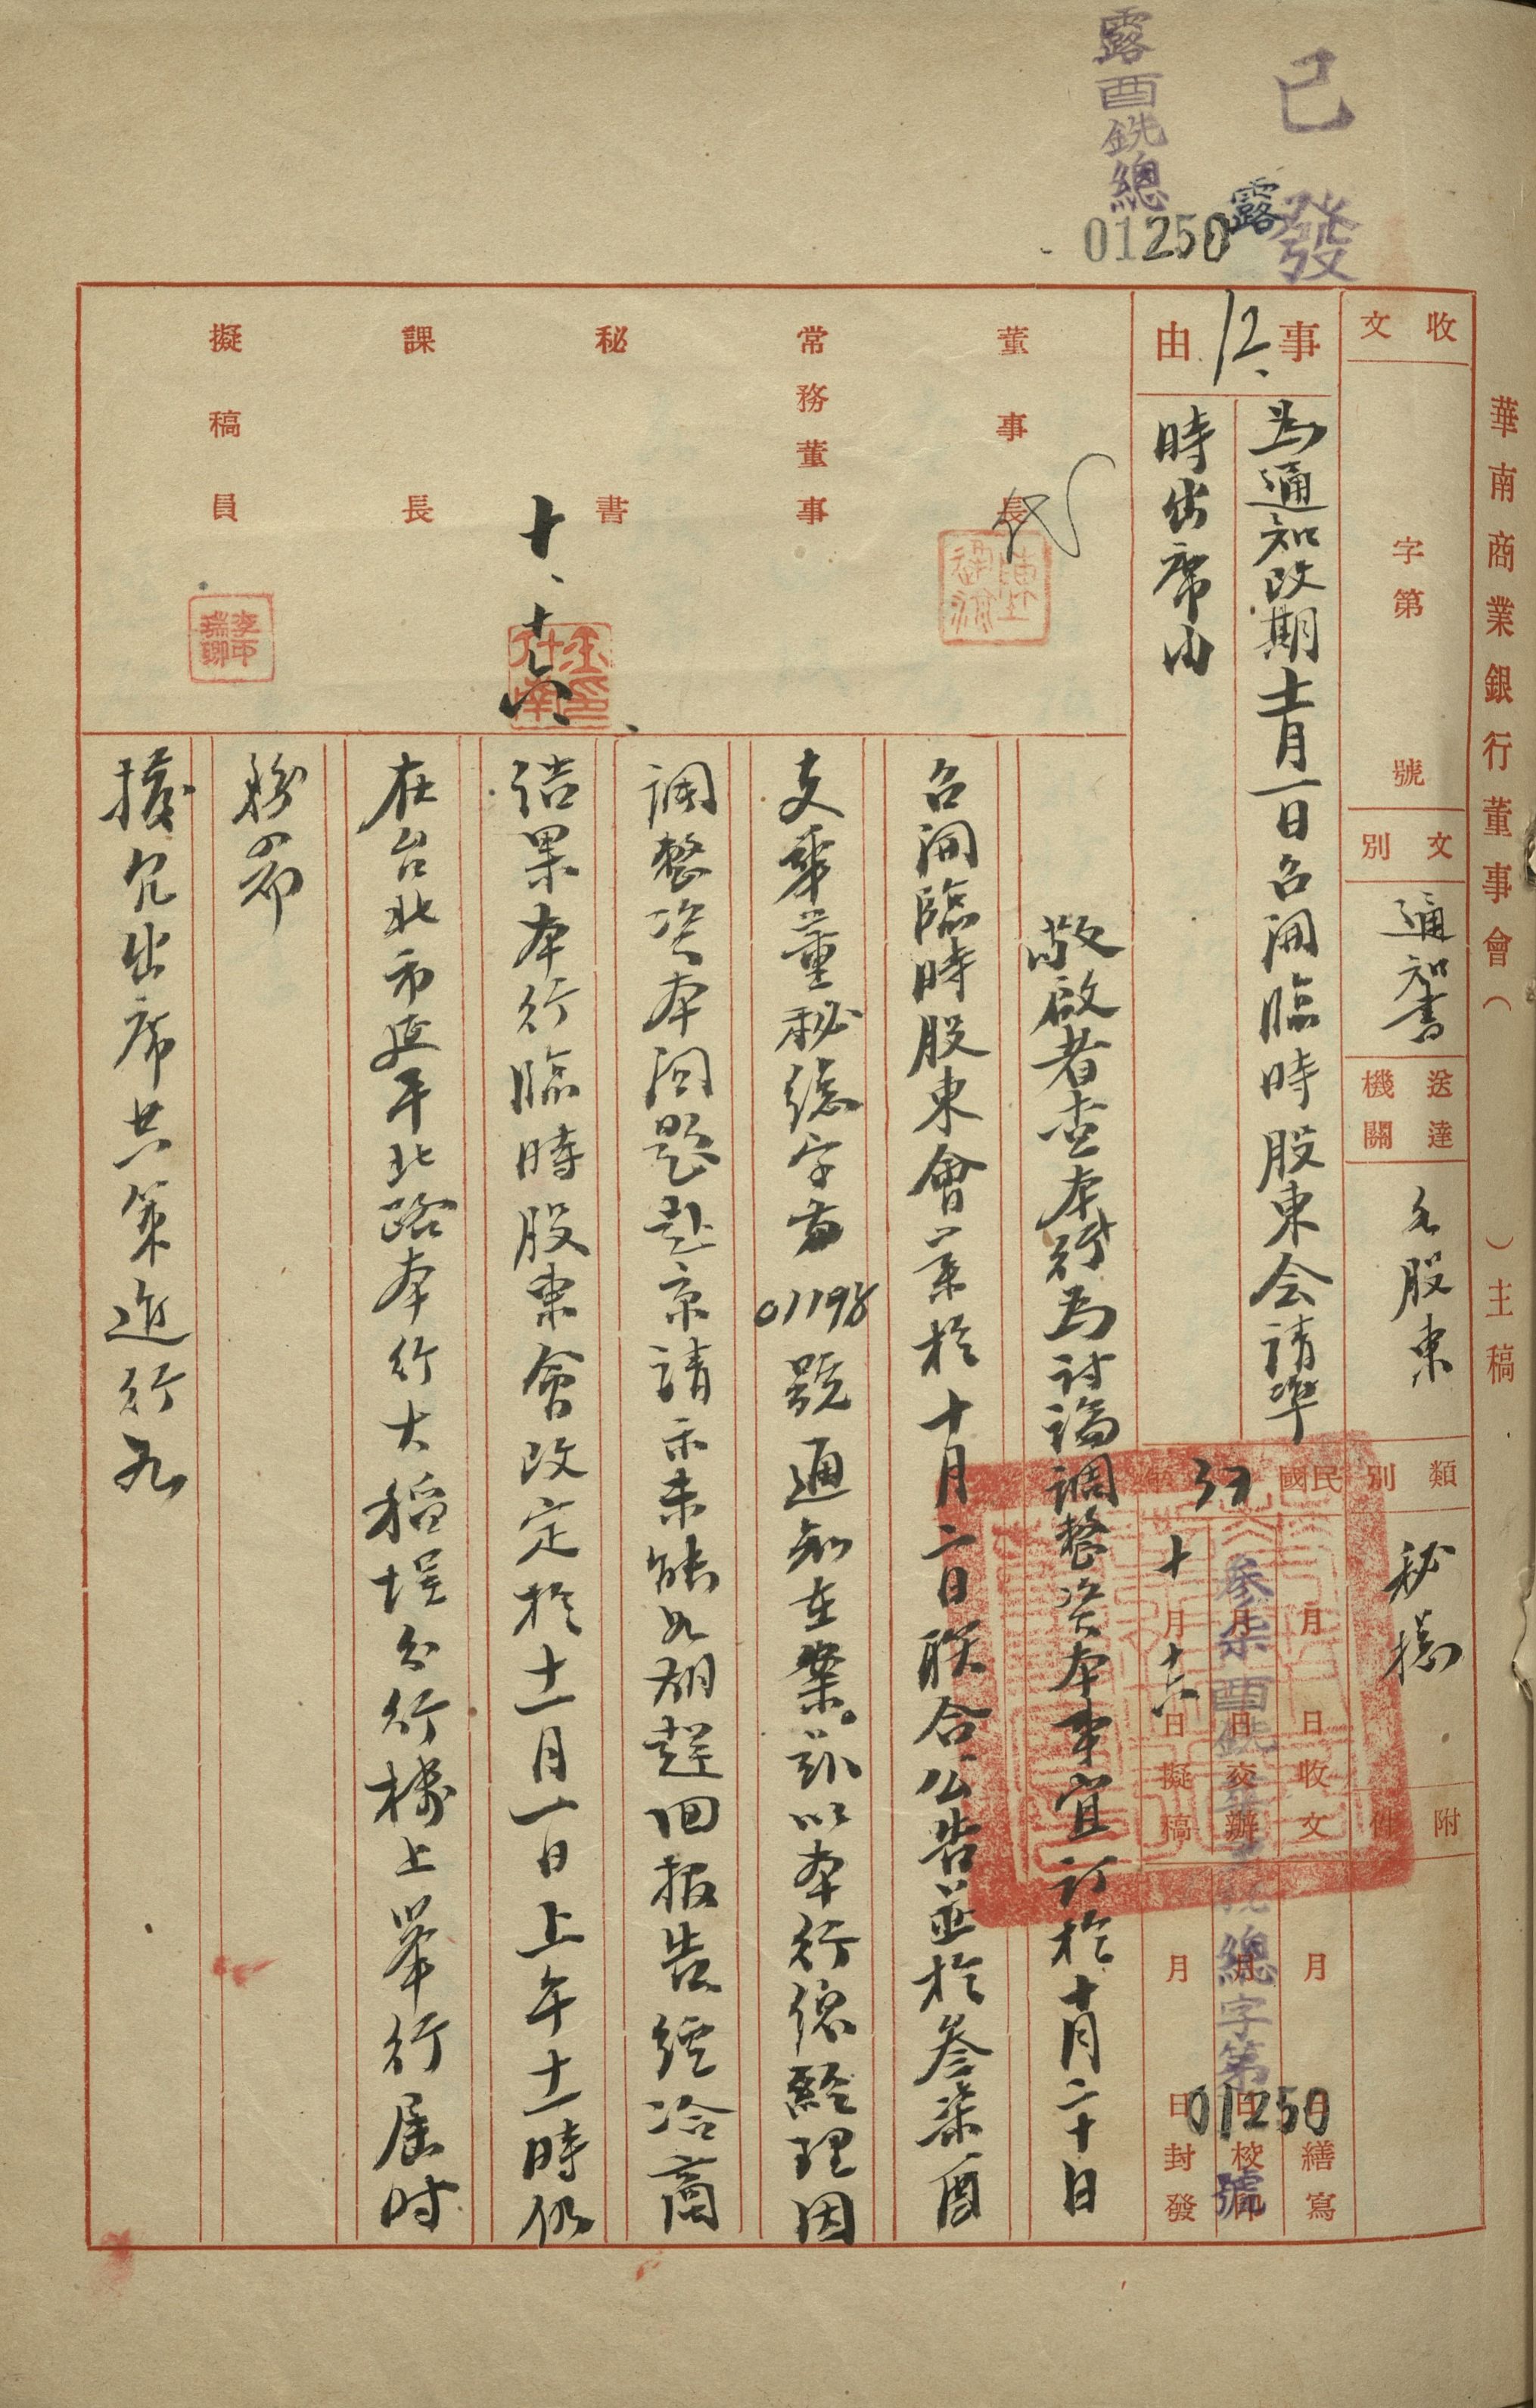 已發
露酉銑總
01250
露
華南商業銀行董事會（　）主稿
收文
字第　號
文別
通知書
送達機關
各股東
類別
秘 總
附件
事由
12、
為通知改期十一月一日召開臨時股東会請準
時出席由
民國 37 年
月　日收文
月　日交辦
十月十六日擬稿
月　日繕寫
月　日校
月　日封發
參柒酉銑 總字第 01250 號
董事長
代
常務董事
秘書
十、十六、
課長
擬稿員
敬啟者查本行為討論調整資本事宜訂於十月二十日
召開臨時股東會業於十月二日联合公告並於叁柒酉
支華董秘總字第01198號通知在案。茲以本行總經理因
調整資本問題赴京請示未能如期趕回報告經洽商
結果本行臨時股東會改定於十一月一日上午十一時仍
在台北市延平北路本行大稻埕分行樓上舉行屆时
務希
撥冗出席共策進行為